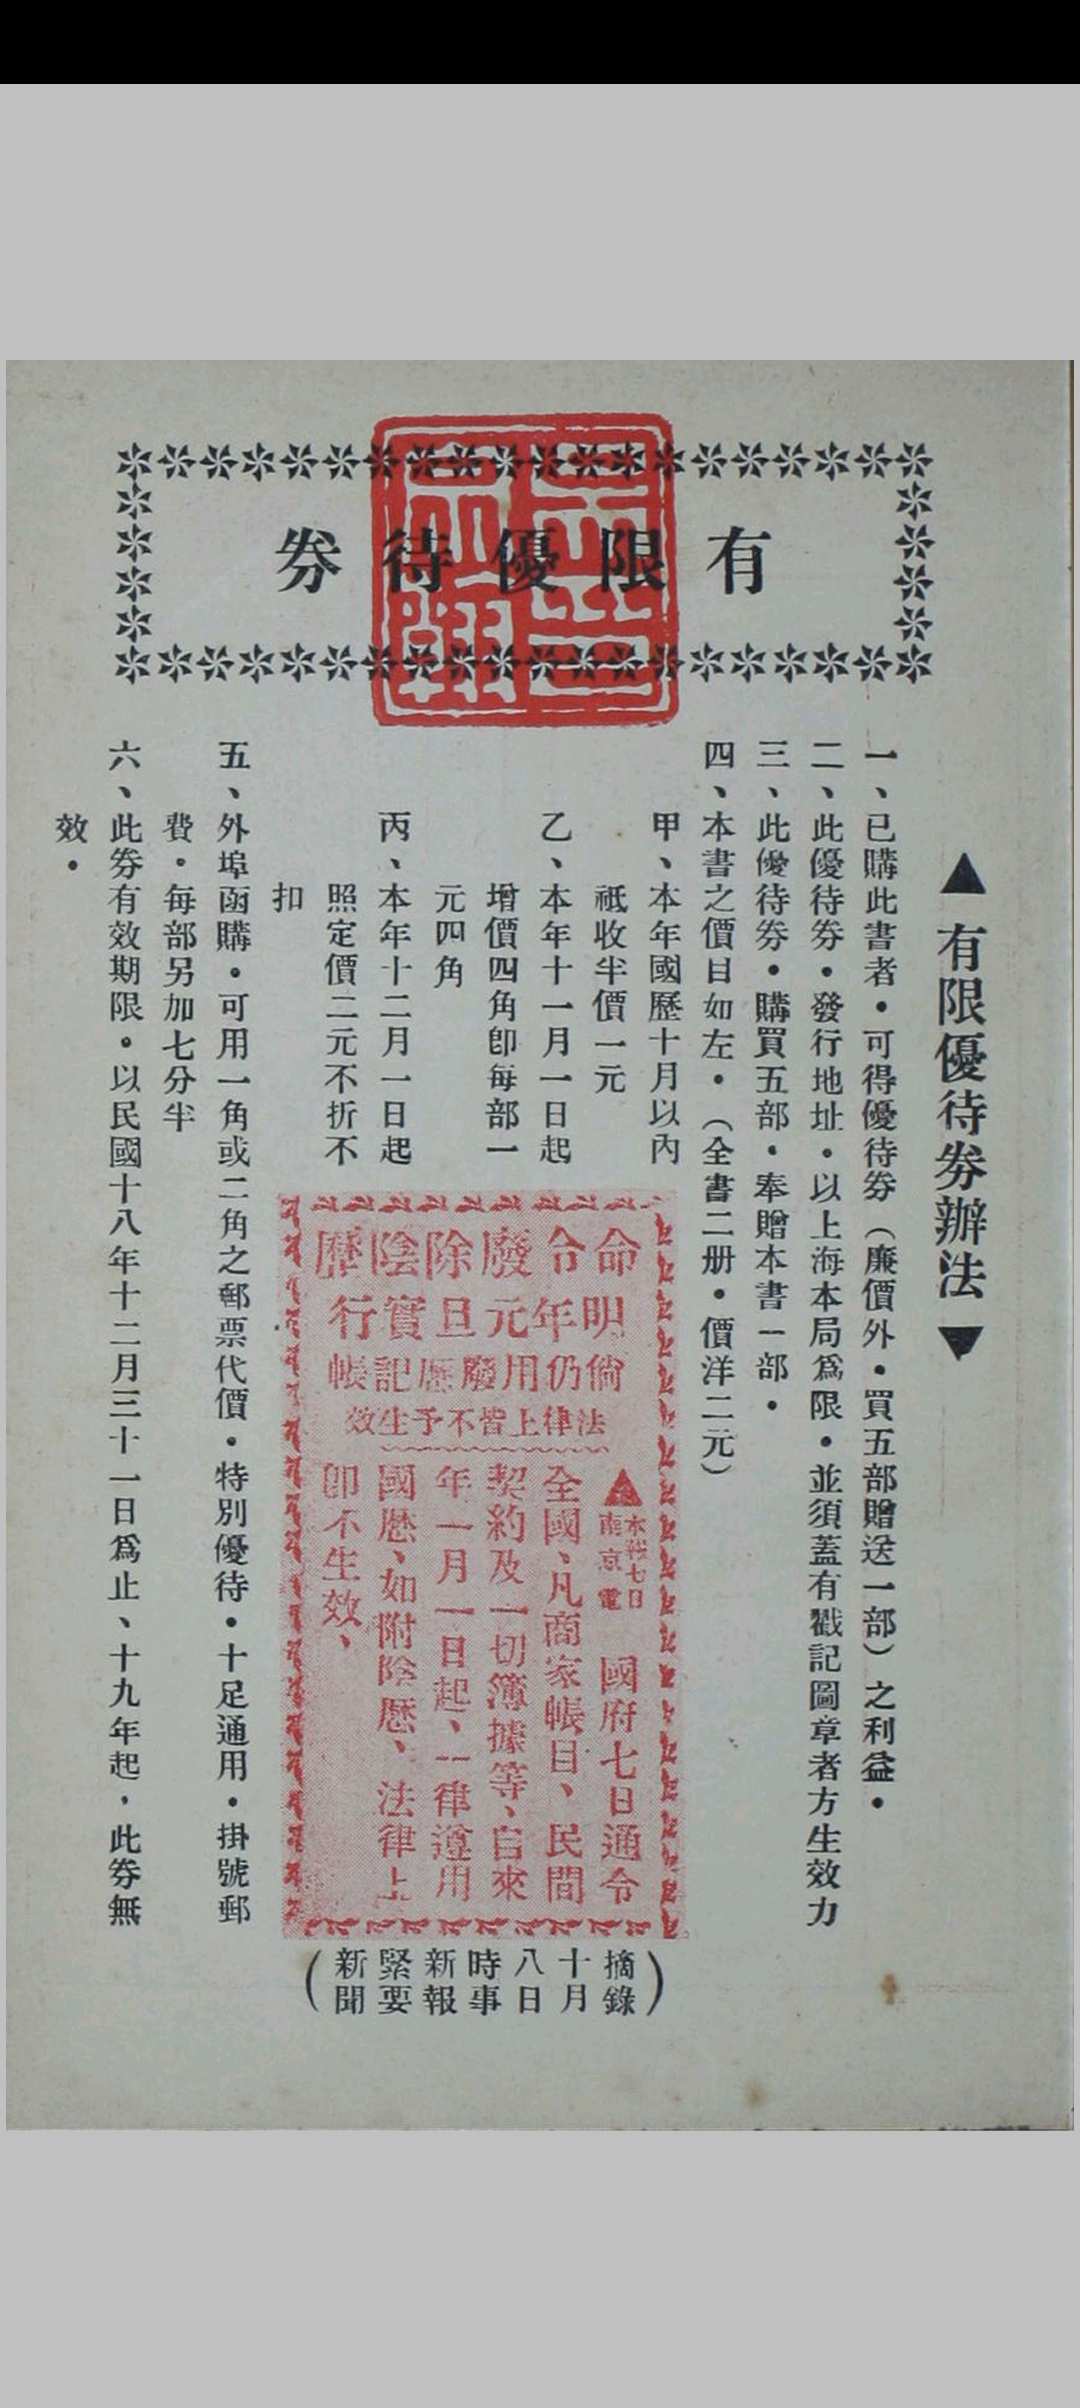 有限優待券
▲有限優待券辦法▼
一、已購此書者・可得優待券（廉價外・買五部贈送一部）之利益・
二、此優待券・發行地址・以上海本局爲限・並須蓋有戳記圖章者方生效力
三、此優待券・購買五部・奉贈本書一部・
四、本書之價目如左・（全書二册・價洋二元）
甲、本年國歷十月以內
祗收半價一元
乙、本年十一月一日起
增價四角卽每部一
元四角
丙、本年十二月一日起
照定價二元不折不
扣
命令廢除陰歷
明年元旦實行
倘仍用廢歷記帳
法律上皆不予生效
▲本報七日
南京電
國府七日通令
全國、凡商家帳目、民間
契約及一切簿據等、自來
年一月一日起、一律遵用
國歷、如附陰歷、法律上
卽不生效、
（摘錄
十月
八日
時事
新報
緊要
新聞）
五、外埠函購・可用一角或二角之郵票代價・特別優待・十足通用・掛號郵
費・每部另加七分半
六、此券有效期限・以民國十八年十二月三十一日爲止、十九年起，此券無
效・